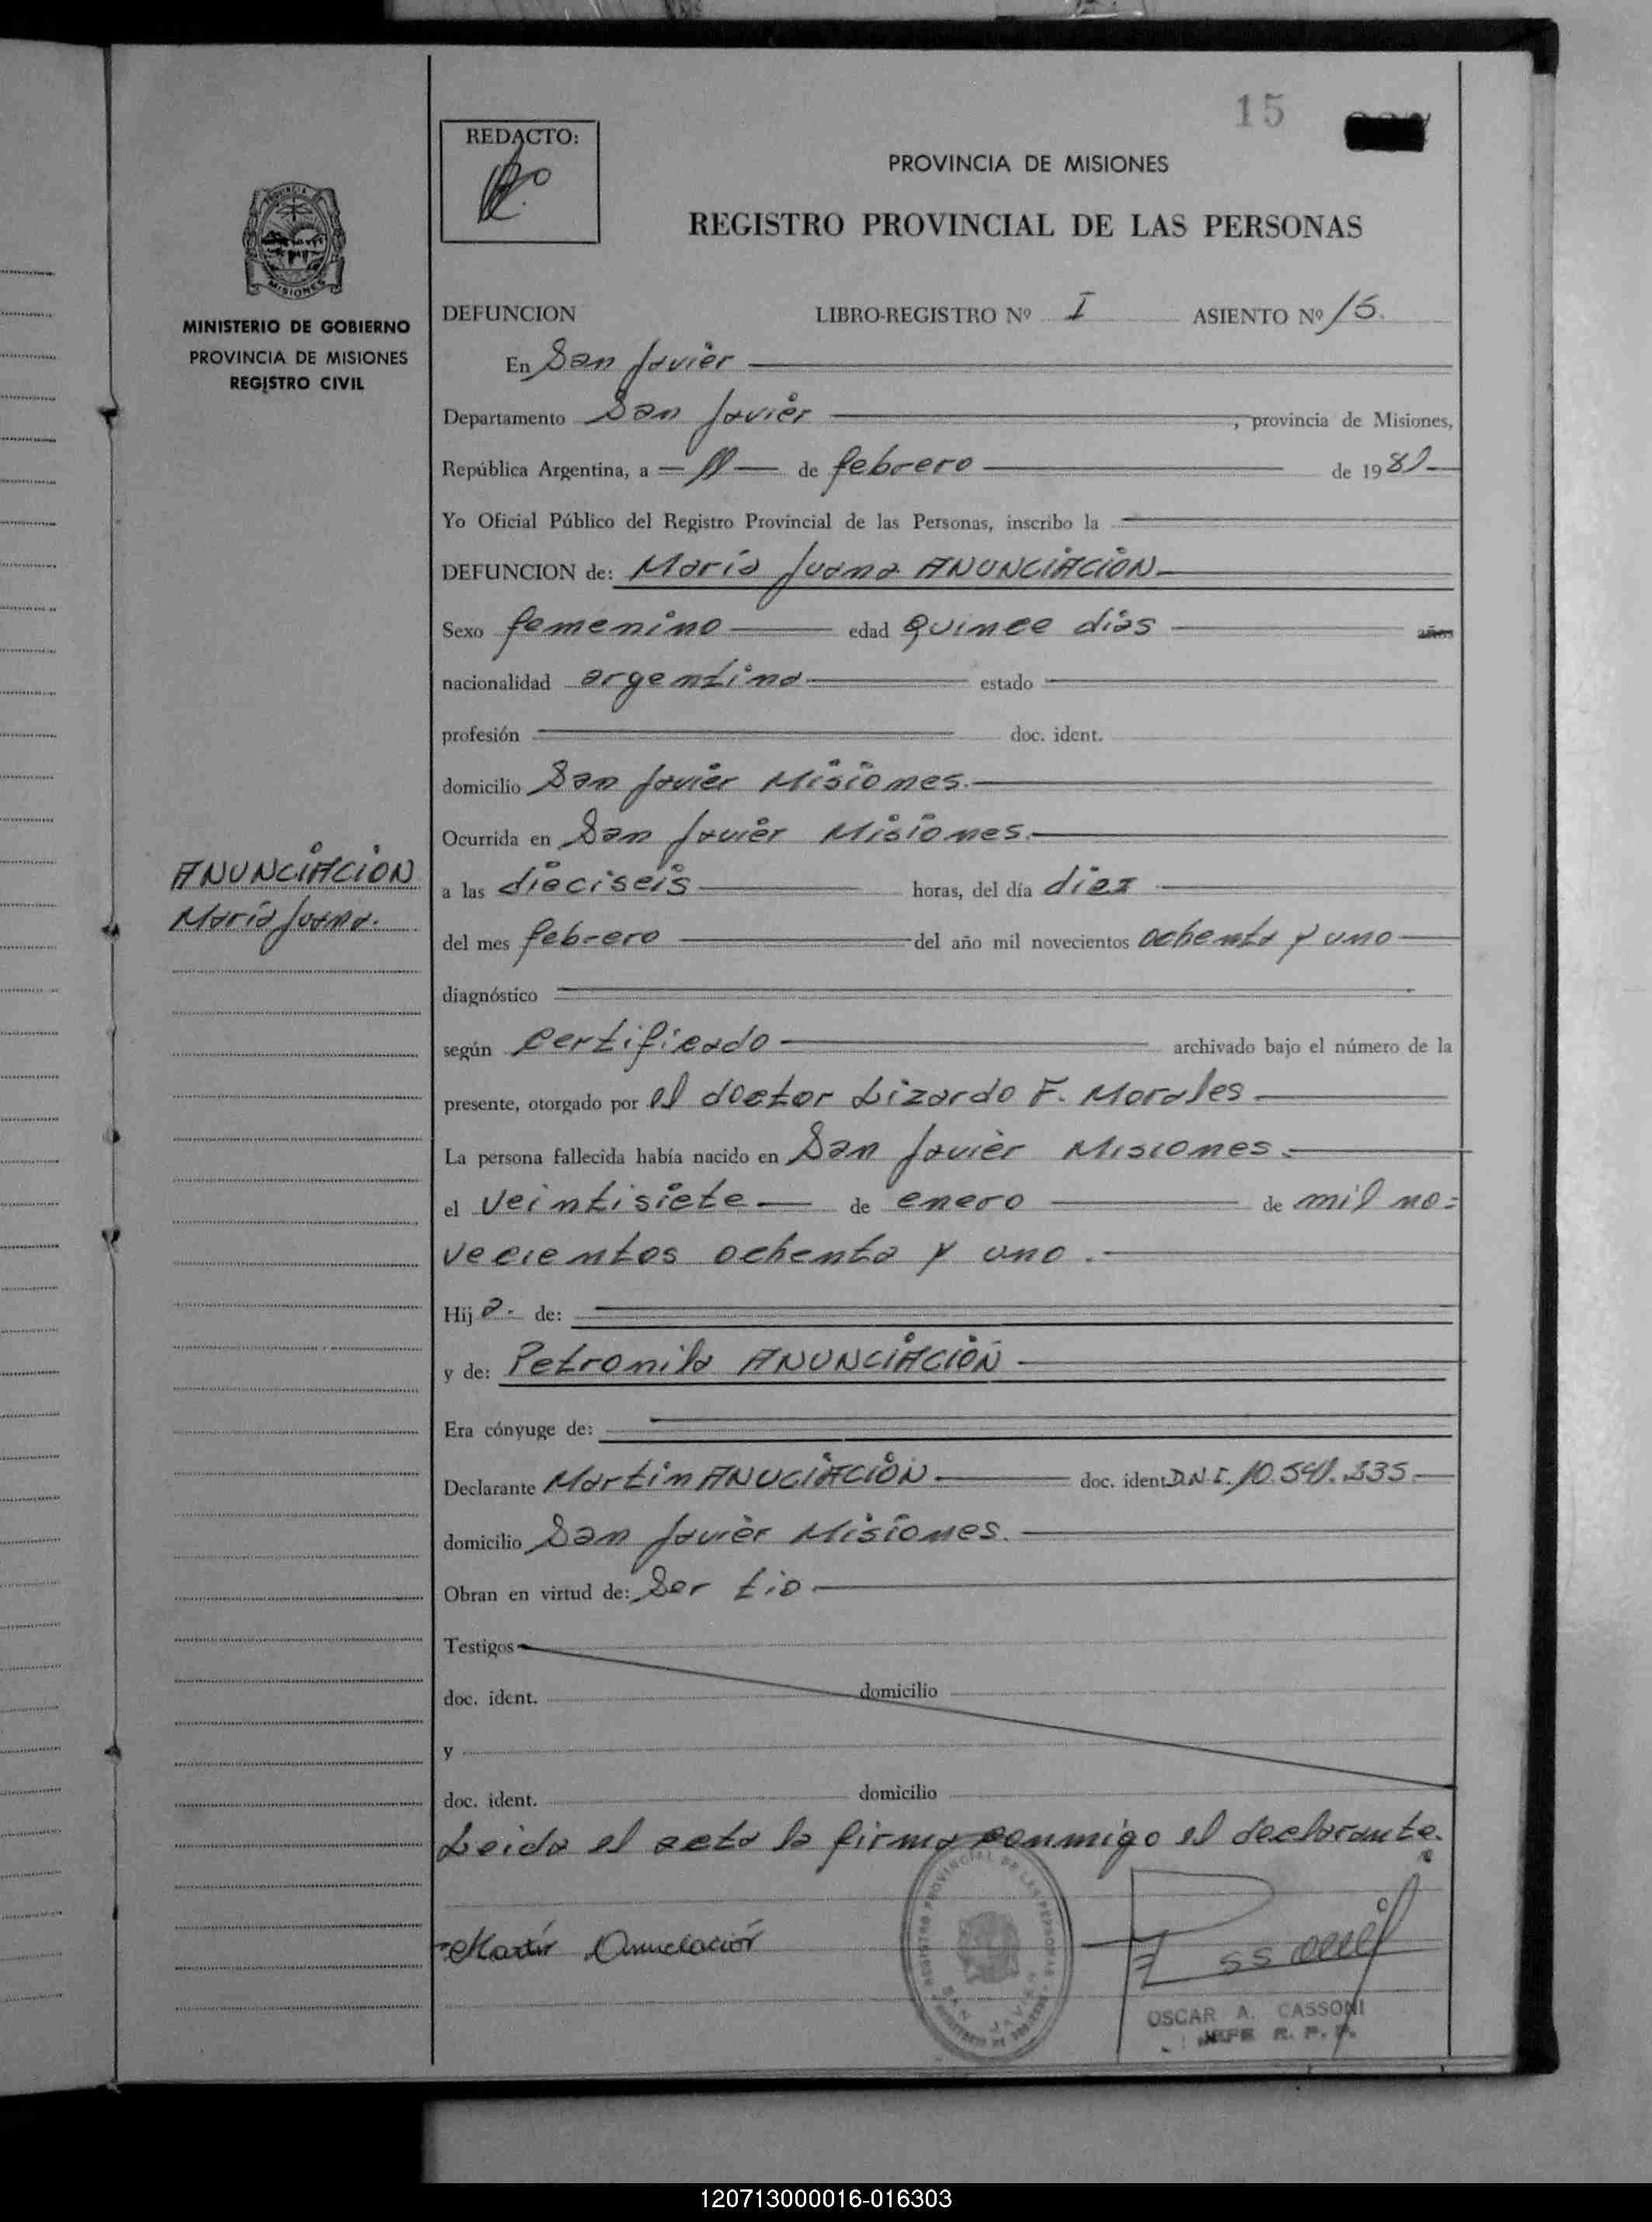 15
REDACTO:
PROVINCIA DE MISIONES
REGISTRO PROVINCIAL DE LAS PERSONAS
MINISTERIO DE GOBIERNO
PROVINCIA DE MISIONES
REGISTRO CIVIL
DEFUNCION LIBRO-REGISTRO Nº I ASIENTO Nº 15.
En San Javier
Departamento San Javier , provincia de Misiones,
República Argentina, a 11 de febrero de 1981
Yo Oficial Público del Registro Provincial de las Personas, inscribo la
DEFUNCION de: María Juana ANUNCIACION
Sexo femenino edad Quince días años
nacionalidad argentina estado
profesión doc. ident.
domicilio San Javier Misiones.
Ocurrida en San Javier Misiones.
ANUNCIACION
María Juana.
a las dieciseis horas, del día diez
del mes febrero del año mil novecientos ochenta y uno
diagnóstico
según certificado archivado bajo el número de la
presente, otorgado por el doctor Lizardo F. Morales
La persona fallecida había nacido en San Javier Misiones.
el veintisiete de enero de mil no=
vecientos ochenta y uno.
Hij a. de:
y de: Petronila ANUNCIACIÓN
Era cónyuge de:
Declarante Martin ANUCIACIÓN doc. ident. D.N.I. 10.541.335
domicilio San Javier Misiones.
Obran en virtud de: Ser tio
Testigos
doc. ident. domicilio
y
doc. ident. domicilio
Leida el acta la firma conmigo el declarante.
Martir Anunciación
REGISTRO PROVINCIAL DE LAS PERSONAS
SAN JAVIER
OSCAR A. CASSONI
JEFE R. P. P.
120713000016-016303